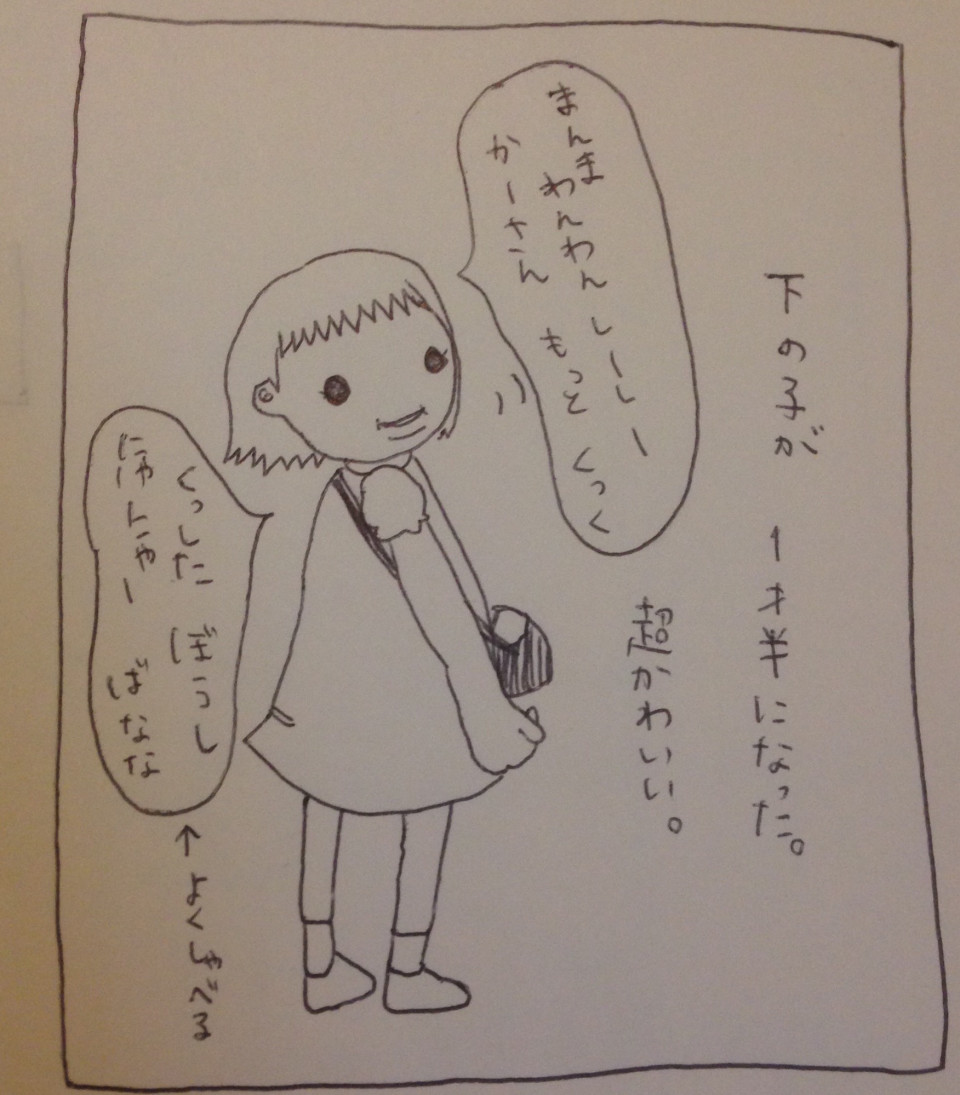 下の子が 1才半になった。
超かわいい。
まんま わんわん しーしー
かーさん もっと くっく
くっした ぼうし
にゃんにゃー ばなな
↑よくしゃべる